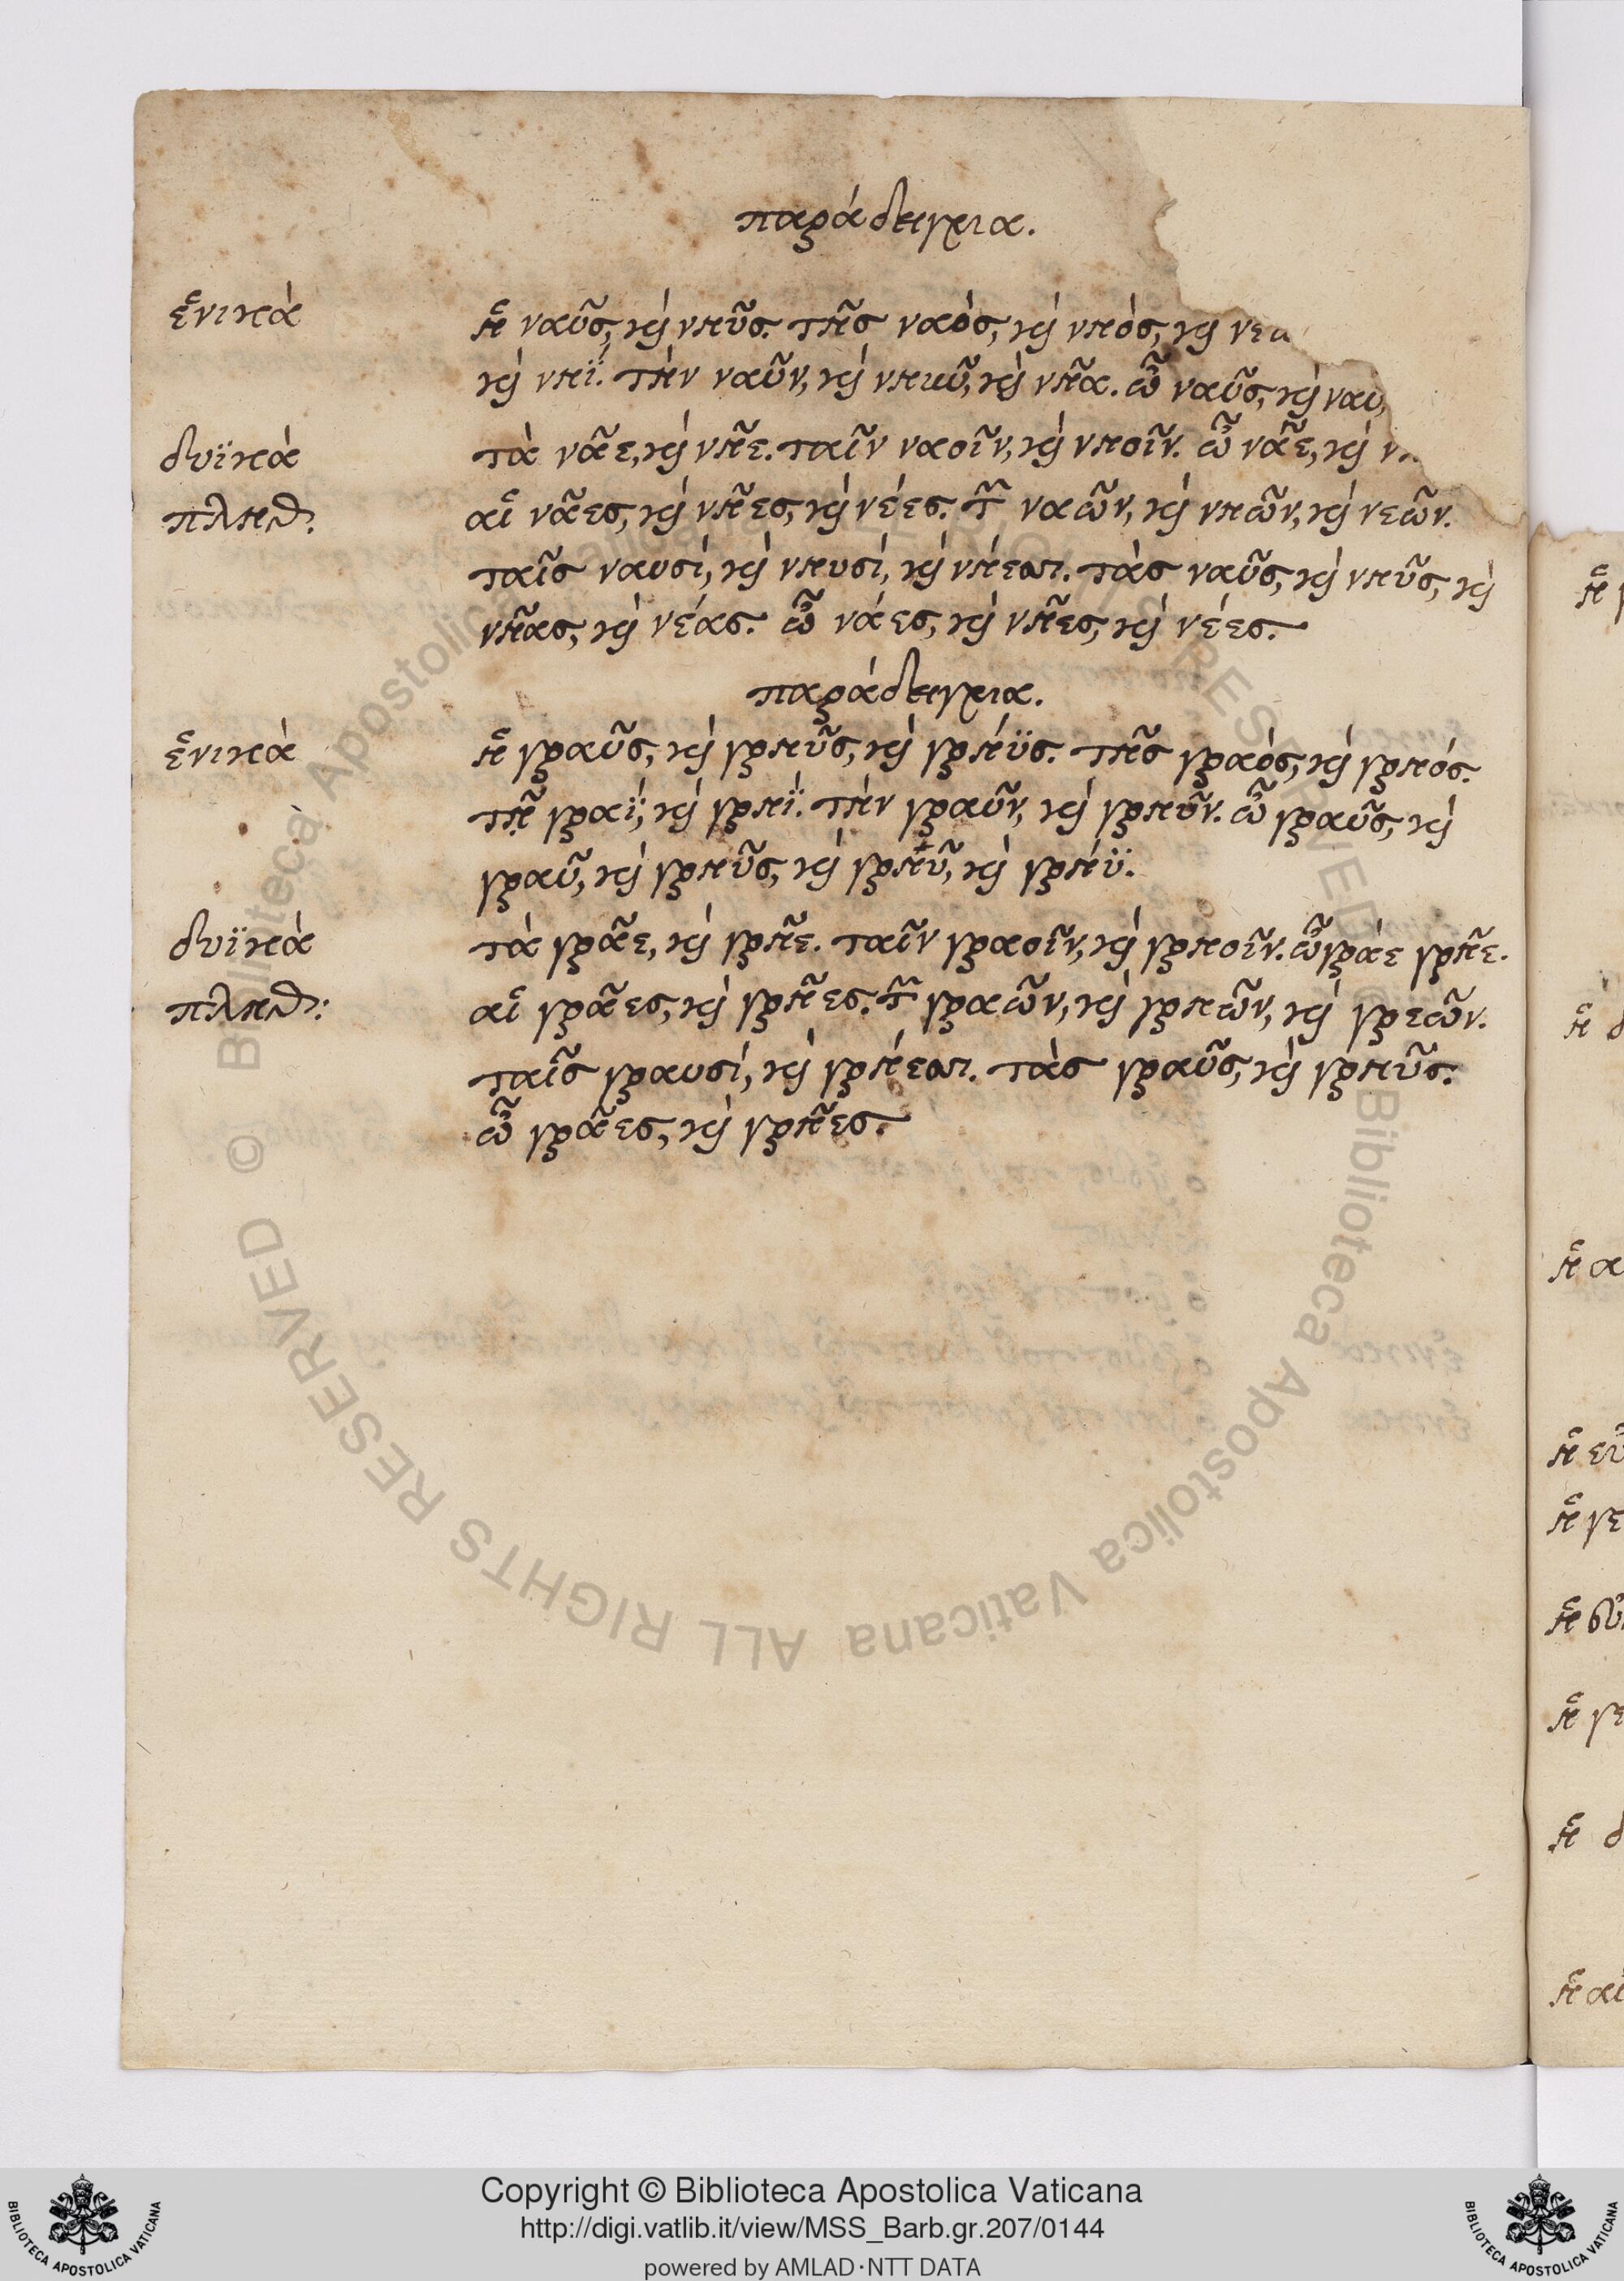 παράδειγμα.
ἑνικὰ ἡ ναῦς, καὶ νηῦς. τῆς ναὸς, καὶ νηὸς, καὶ
καὶ νηΐ. τὴν ναῦν, καὶ καὶ νῆα. ὦ ναῦς, καὶ ναυ
δυϊκὰ τὰ νᾶε, καὶ νῆε. ταῖν ναοῖν, καὶ νηοῖν. ὦ νᾶε, καὶ
πληθ: αἱ νᾶες, καὶ νῆες, καὶ νέες. τῶν ναῶν, καὶ νηῶν, καὶ νεῶν.
ταῖς ναυσί, καὶ νηυσί, καὶ νήεσσι. τὰς ναῦς, καὶ νηῦς, καὶ
νῆας, καὶ νέας. ὦ νάες, καὶ νῆες, καὶ νέες.
παράδειγμα.
ἑνικὰ ἡ γραῦς, καὶ γρηῦς, καὶ γρήϋς. τῆς γραὸς, καὶ γρηός.
τῇ γραῒ, καὶ γρηΐ. τὴν γραῦν, καὶ γρηῦν. ὦ γραῦς, καὶ
γραῦ, καὶ γρηῦς, καὶ γρηῦ, καὶ γρήϋ.
δυϊκὰ τὰ γρᾶε, καὶ γρῆε. ταῖν γραοῖν, καὶ γρηοῖν. ὦ γράε γρῆε.
πληθ: αἱ γρᾶες, καὶ γρῆες. τῶν γραῶν, καὶ γρηῶν, καὶ γρεῶν.
ταῖς γραυσί, καὶ γρήεσσι. τὰς γραῦς, καὶ γρηῦς.
ὦ γρᾶες, καὶ γρῆες.
© Biblioteca Apostolica Vaticana ALL RIGHTS RESERVED
© Biblioteca Apostolica Vaticana ALL RIGHTS RESERVED
Copyright © Biblioteca Apostolica Vaticana
http://digi.vatlib.it/view/MSS_Barb.gr.207/0144
powered by AMLAD·NTT DATA
BIBLIOTECA APOSTOLICA VATICANA
BIBLIOTECA APOSTOLICA VATICANA